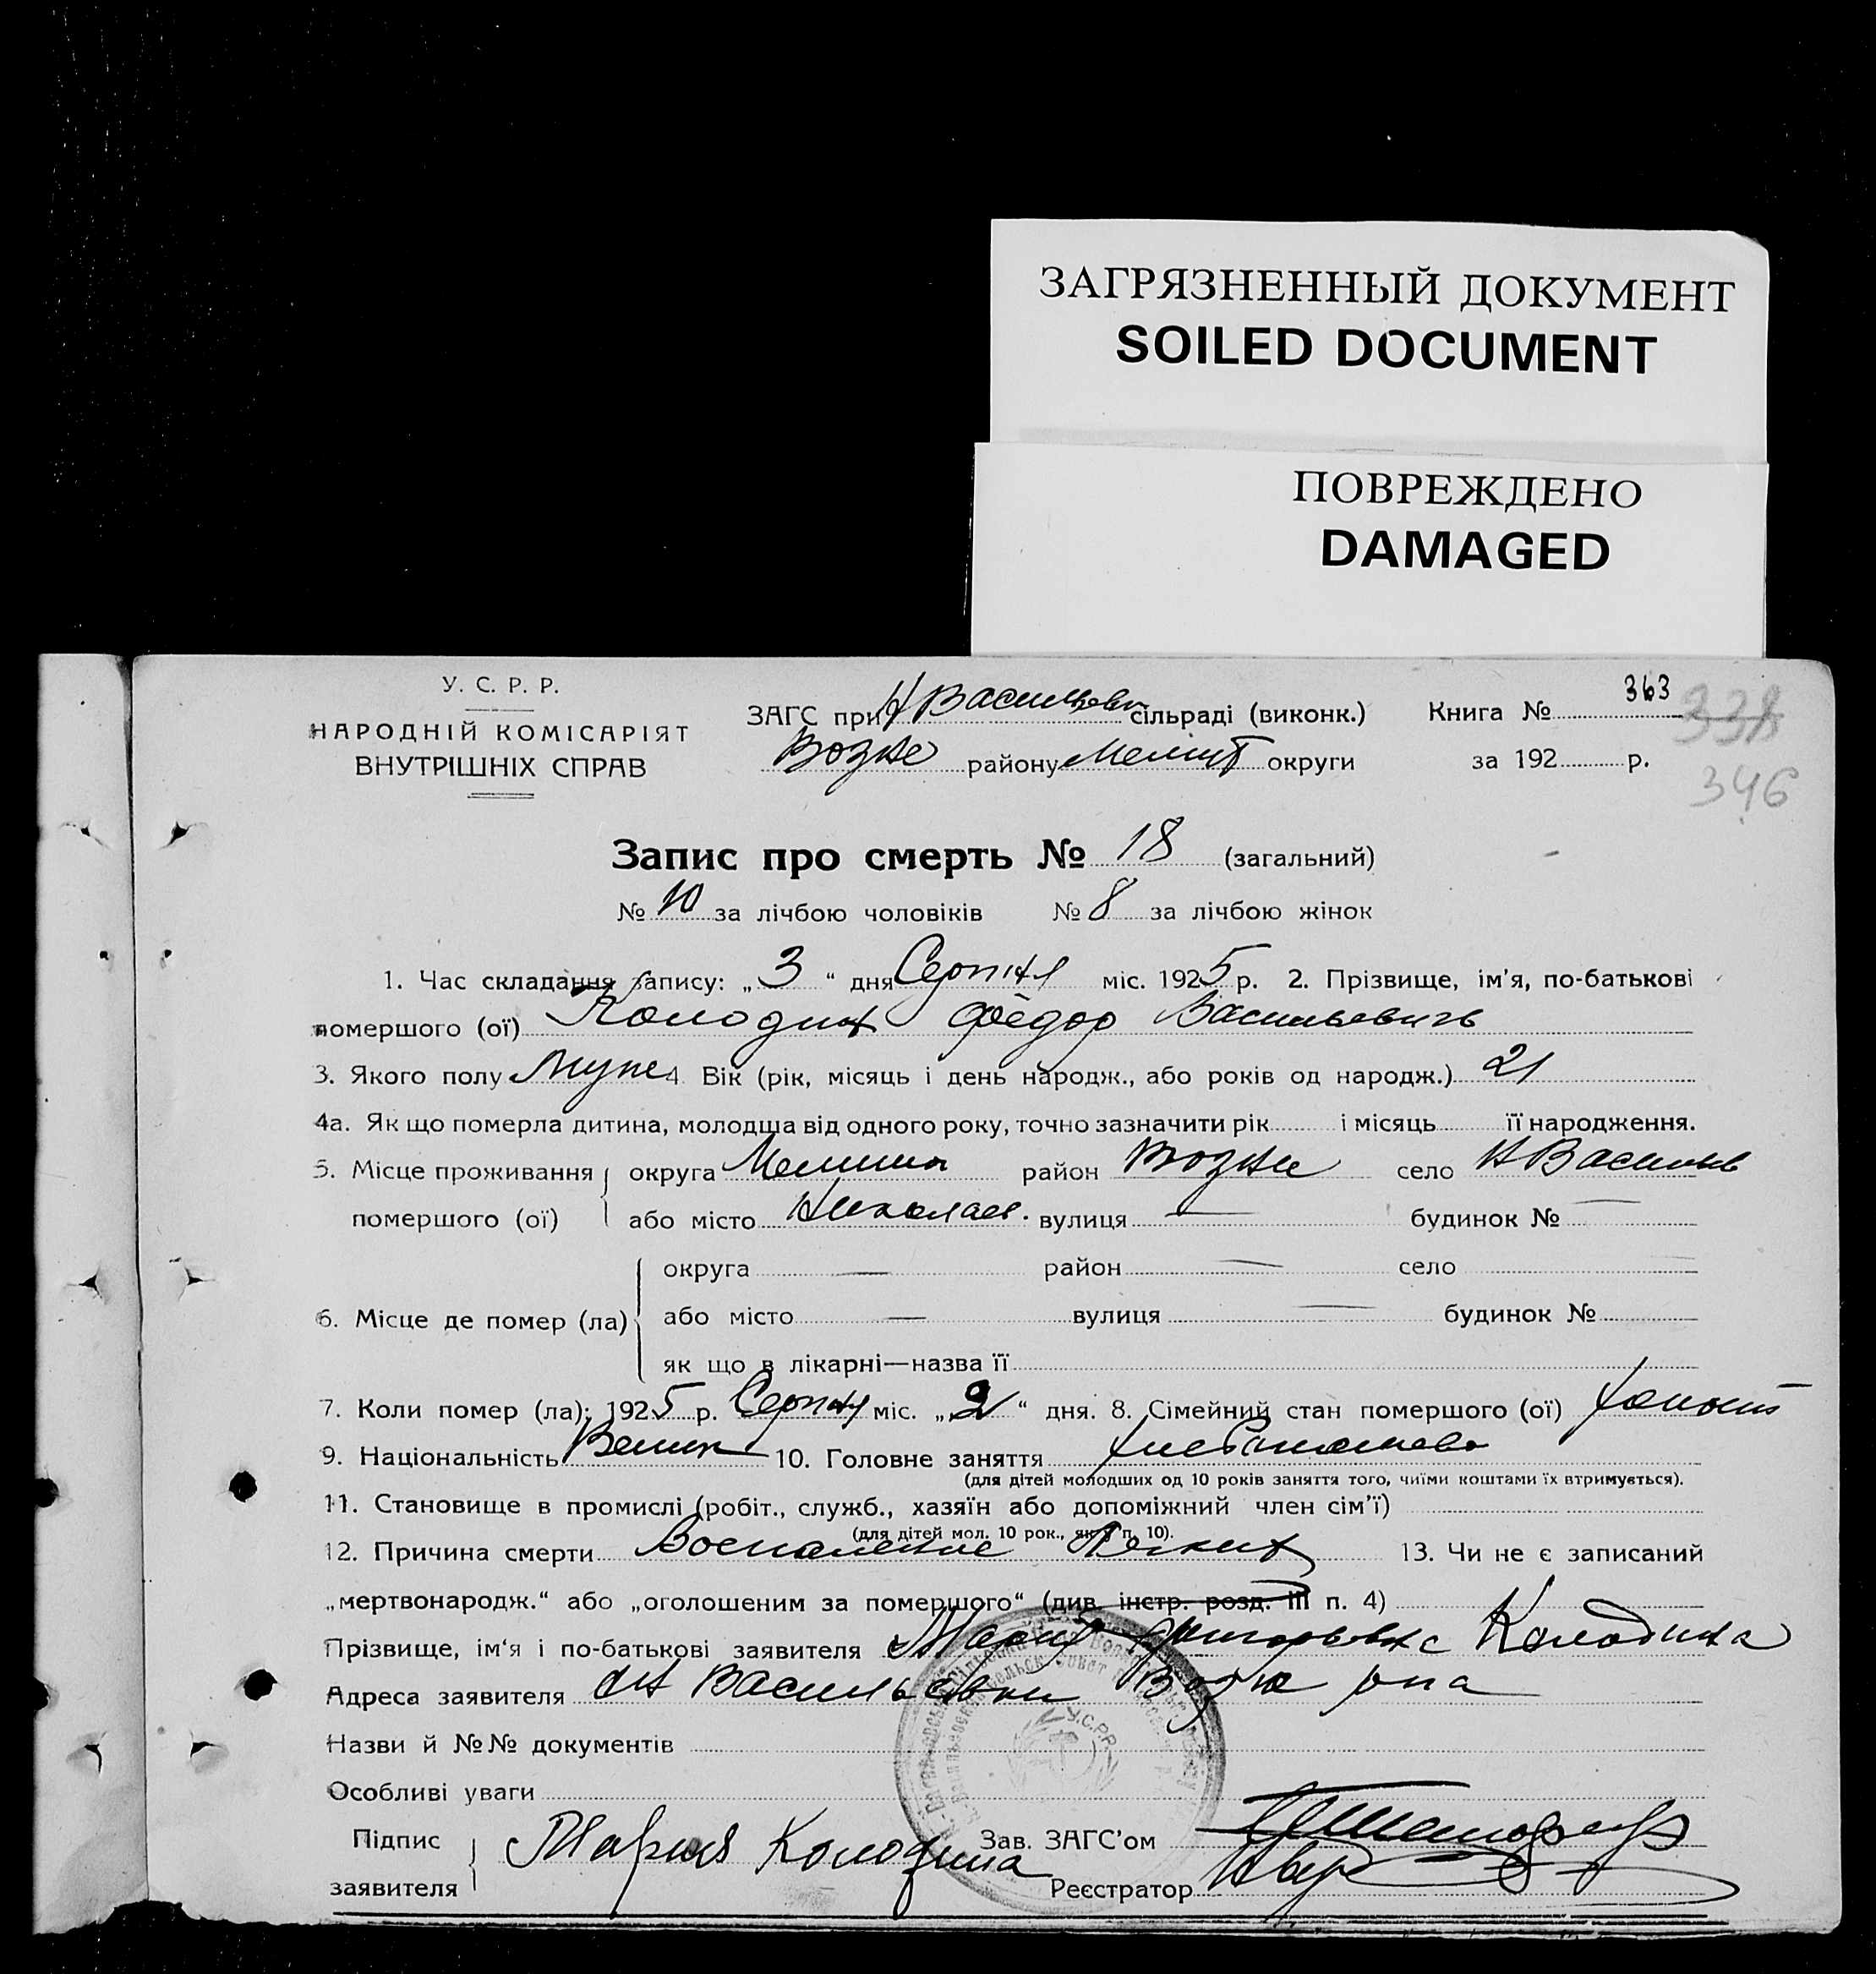 ЗАГРЯЗНЕННЫЙ ДОКУМЕНТ
SOILED DOCUMENT
ПОВРЕЖДЕНО
DAMAGED
У. С. Р. Р.
НАРОДНІЙ КОМІСАРІЯТ
ВНУТРІШНІХ СПРАВ
ЗАГС при сільраді (виконк.)
Возне району Мелит округи
Книга № 363
338
за 192 р.
346
Запис про смерть № 18 (загальний)
№ 10 за лічбою чоловіків № 8 за лічбою жінок
1. Час складання запису: „ 3 “ дня Серпня міс. 1925 р. 2. Прізвище, ім'я, по-батькові
помершого (ої) Колодин Фёдор Васильевичь
3. Якого полу Муже 4. Вік (рік, місяць і день народж., або років од народж.) 21
4а. Як що померла дитина, молодша від одного року, точно зазначити рік і місяць її народження.
5. Місце проживання округа район Возне село Н Василье
помершого (ої) або місто Николаев. вулиця — будинок № —
округа — район — село
6. Місце де помер (ла) або місто — вулиця — будинок №
як що в лікарні—назва її
7. Коли помер (ла): 1925 р. Серпня міс. „ 2 “ дня. 8. Сімейний стан помершого (ої) холост
9. Національність Велик 10. Головне заняття
(для дітей молодших од 10 років заняття того, чиїми коштами їх втримується).
11. Становище в промислі (робіт., служб., хазяїн або допоміжний член сім'ї)
(для дітей мол. 10 рок., як у п. 10).
12. Причина смерти Воспаление Легких 13. Чи не є записаний
„мертвонародж.“ або „оголошеним за помершого“ (див. інстр. розд. III п. 4)
Прізвище, ім'я і по-батькові заявителя Мария Колодина
Адреса заявителя Васильевки Возне рна
Назви й №№ документів
Особливі уваги
У.С.Р.Р.
Підпис заявителя Мария Колодина
Зав. ЗАГС'ом
Реєстратор